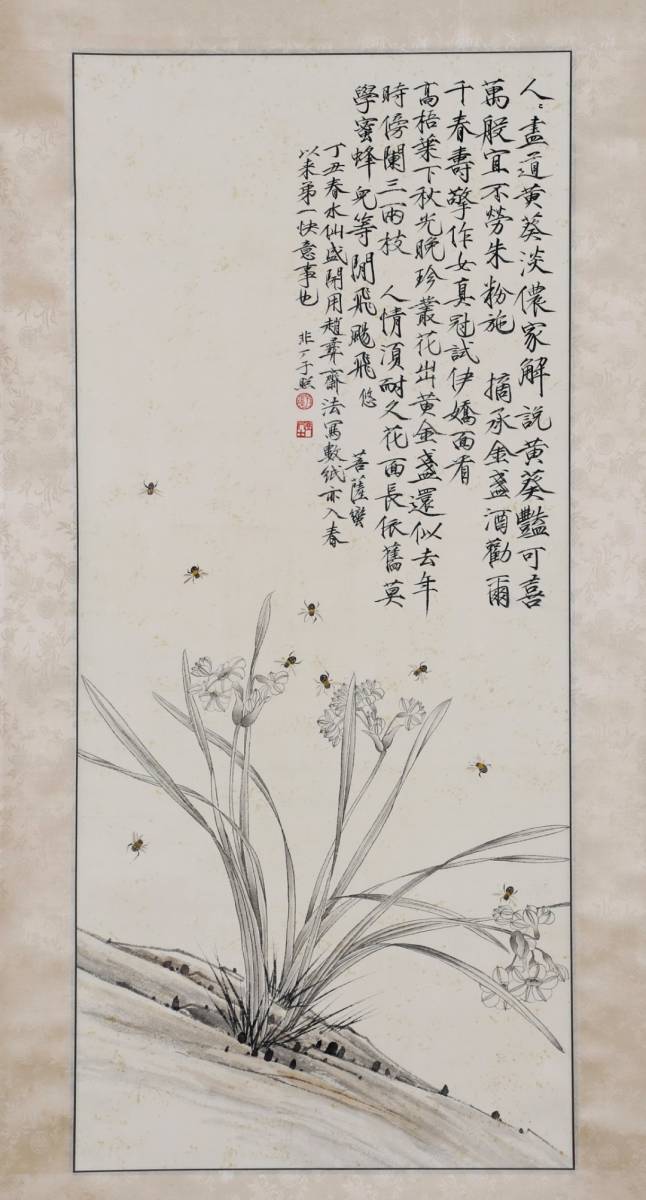 人〻盡道黃葵淡儂家解說黃葵豔可喜
萬般宜不勞朱粉施 摘承金盞酒勸爾
千春壽擎作女真冠試伊嬌面看
高梧葉下秋光晚珍叢花出黃金盞還似去年
時傍闌三兩枝 人情須耐久花面長依舊莫
學蜜蜂兒等閒飛颺飛 悠 菩薩蠻
丁丑春水仙盛開用趙彝齋法寫數紙亦入春
以来弟一快意事也 非厂于照